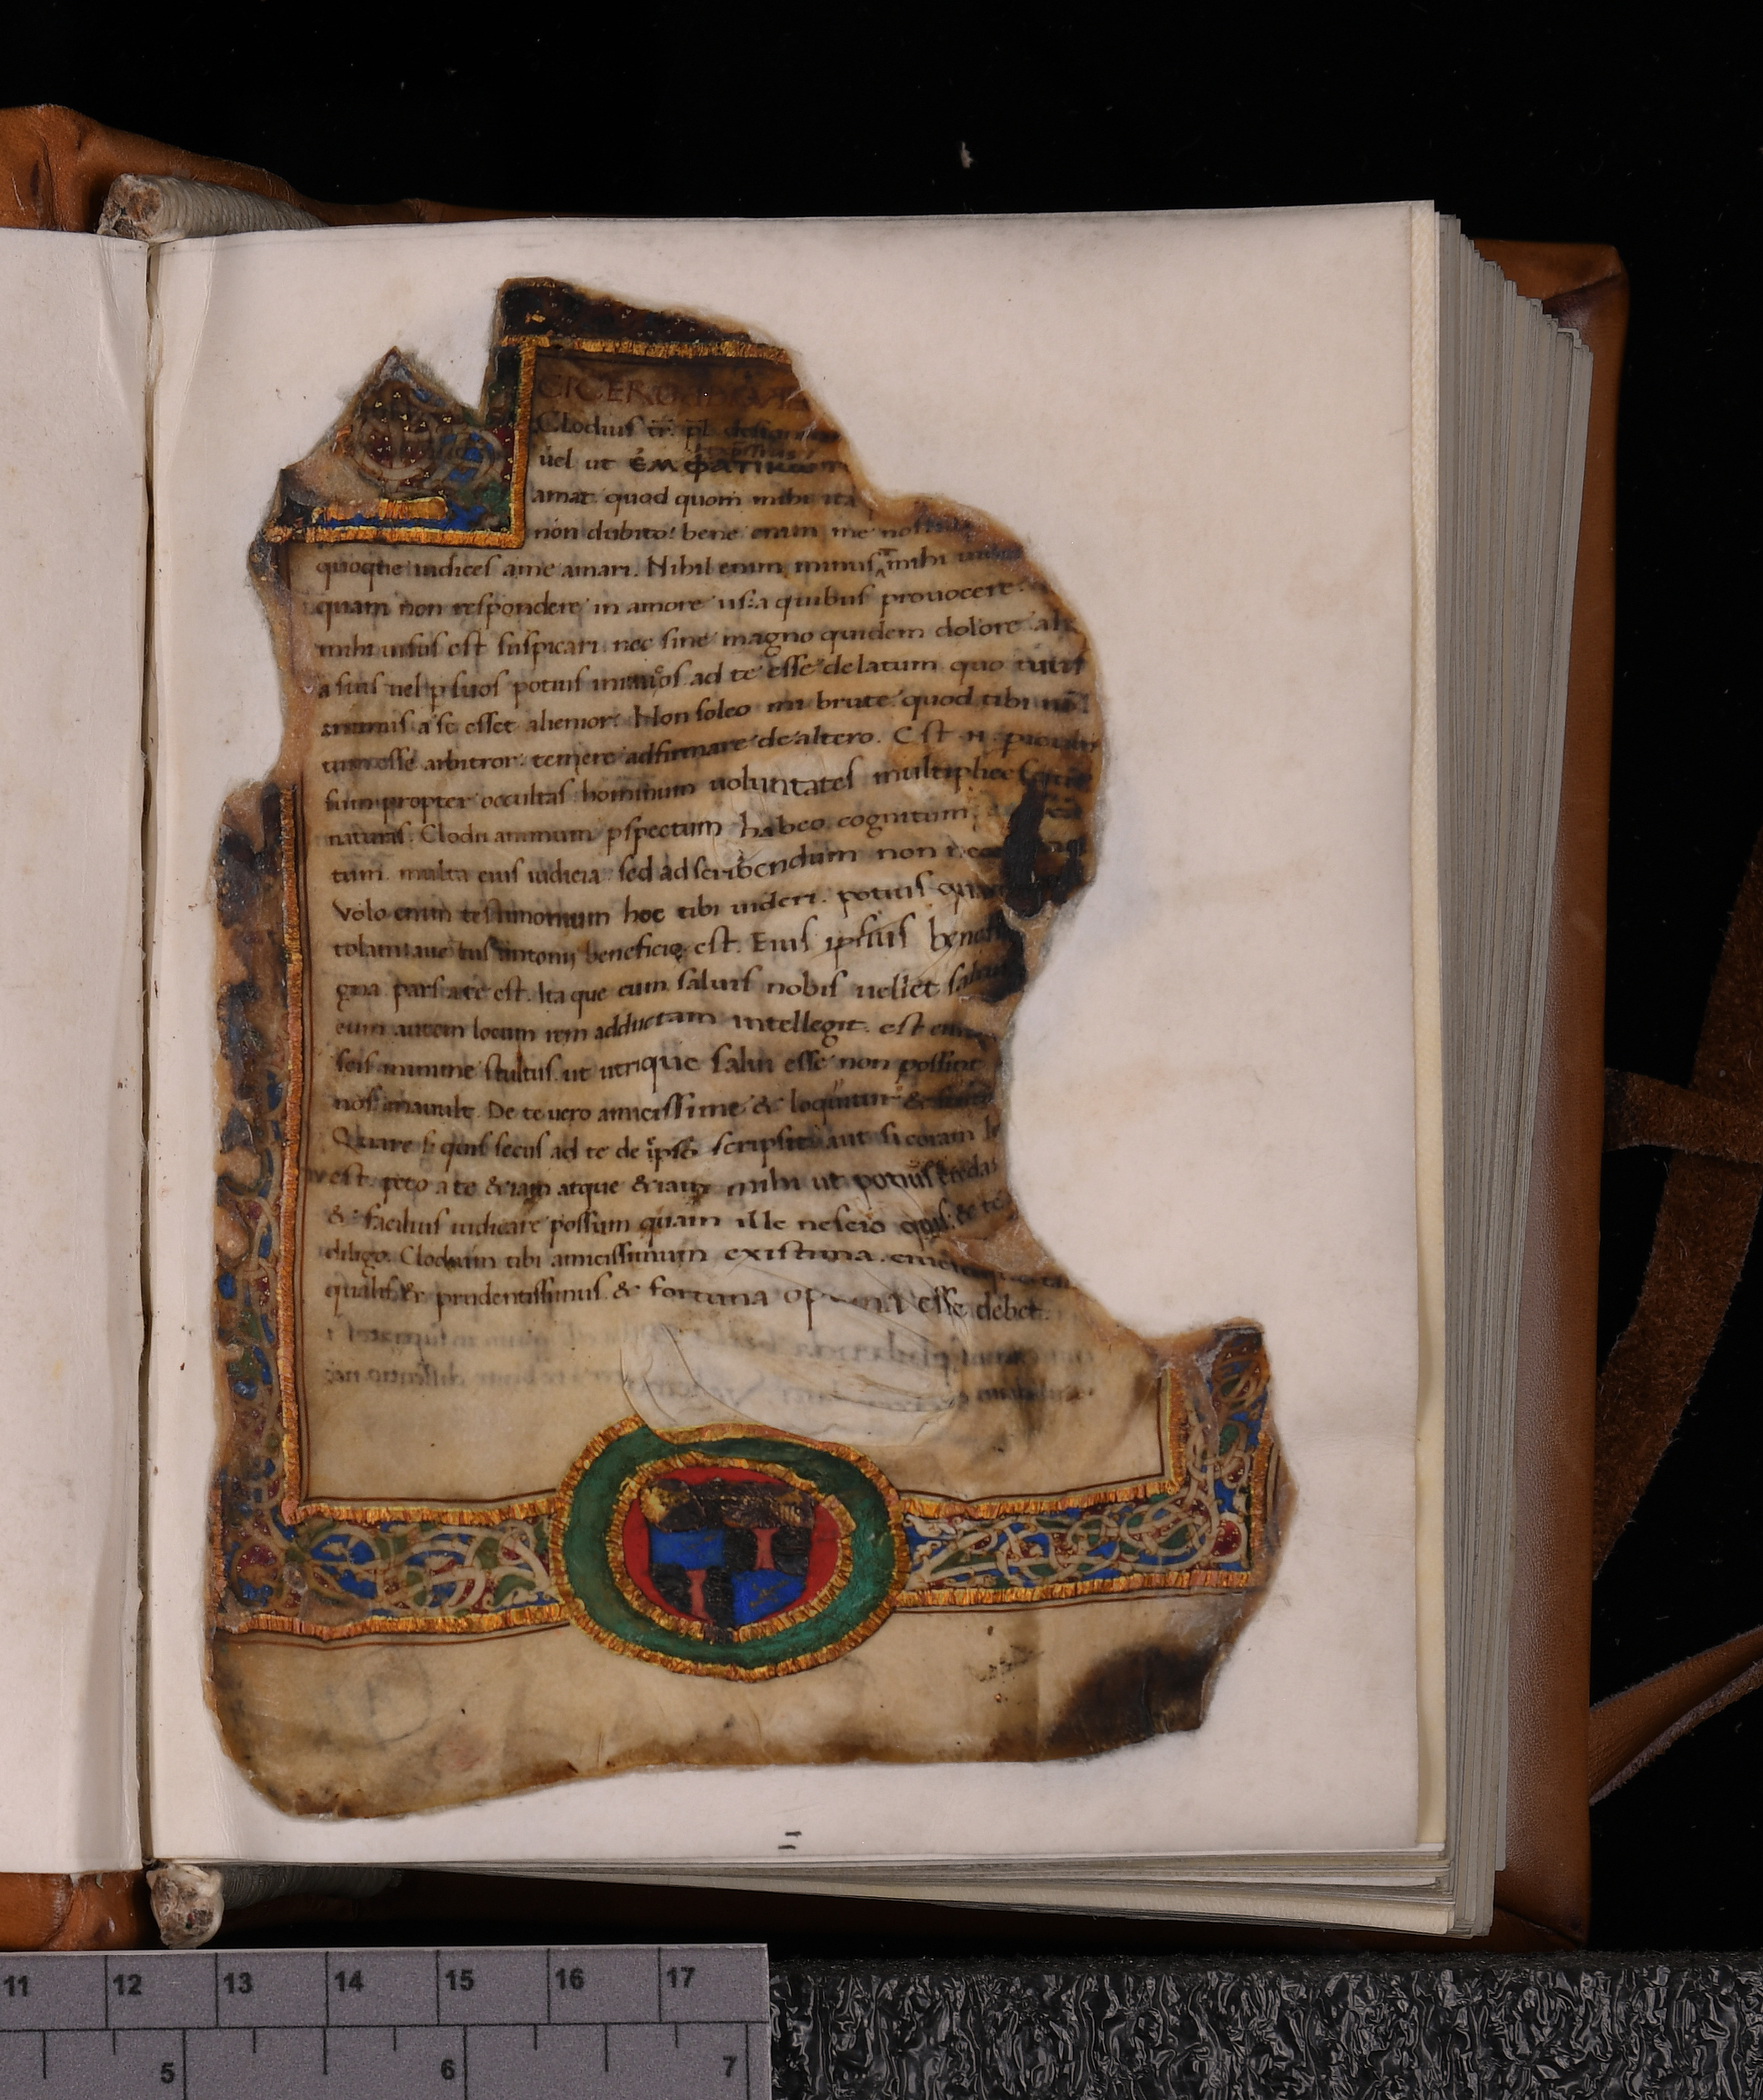 CICERO
Clodius tr. pl. design
uel ut ἐμφατικώ
amat quod quom mihi ita
non dubito: bene enim me nosti
quoque iudices ame amari. Nihil enim minus mihi
quam non respondere in amore iis: a quibus prouocere.
mihi uisus est suspicari: nec sine magno quidem dolore ali
a suis uel p suos potius ad te esse delatum quo tuus
animus a se esset alienior. Non soleo mi brute quod tibi no
tum esse arbitror: temere adfirmare de altero. Est .n.
sum propter occultas hominum uoluntates multiplices
naturas. Clodii animum pspectum habeo cognitum
tum. multa eius iudicia: sed ad scribendum non
Volo enim testimonium hoc tibi uideri. potius
beneficio est. Eius ipsius
gna pars a te est. Itaque eum saluis nobis uellet
eum autem locum rem adductam intellegit. est enim
scis minime stultus. ut utrique salui esse non possint
nos mauult. De te uero amicissime & loquitur &
Quare si quis secus ad te de ipso scripsit: aut si coram
est: peto a te & iam atque & iam mihi ut potius credas
& facilius iudicare possum quam ille nescio quis: & te
diligo. Clodium tibi amicissimum existima.
qualis & prudentissimus & fortuna optima esse debet.
11 12 13 14 15 16 17
5 6 7